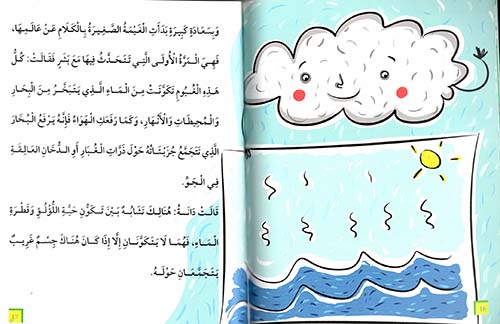 وَبِسَعَادَةٍ كَبِيرَةٍ بَدَأَتِ الْغَيْمَةُ الصَّغِيرَةُ بِالْكَلَامِ عَنْ عَالَمِهَا،
فَهِيَ الْمَرَّةُ الْأُولَى الَّتِي تَتَحَدَّثُ فِيهَا مَعَ بَشَرٍ فَقَالَتْ: كُلُّ
هَذِهِ الْغُيُومِ تَكَوَّنَتْ مِنَ الْمَاءِ الَّذِي يَتَبَخَّرُ مِنَ الْبِحَارِ
وَالْمُحِيطَاتِ وَالْأَنْهَارِ، وَكَمَا رَفَعَكِ الْهَوَاءُ فَإِنَّهُ يَرْفَعُ الْبُخَارَ
الَّذِي تَتَجَمَّعُ جُزَيْئَاتُهُ حَوْلَ ذَرَّاتِ الْغُبَارِ أَوِ الدُّخَانِ الْعَالِقَةِ
فِي الْجَوِّ.
قَالَتْ دَانَةُ: هُنَالِكَ تَشَابُهٌ بَيْنَ تَكَوُّنِ حَبَّةِ اللُّؤْلُؤِ وَقَطْرَةِ
الْمَاءِ، فَهُمَا لَا يَتَكَوَّنَانِ إِلَّا إِذَا كَانَ هُنَاكَ جِسْمٌ غَرِيبٌ
يَتَجَمَّعَانِ حَوْلَهُ.